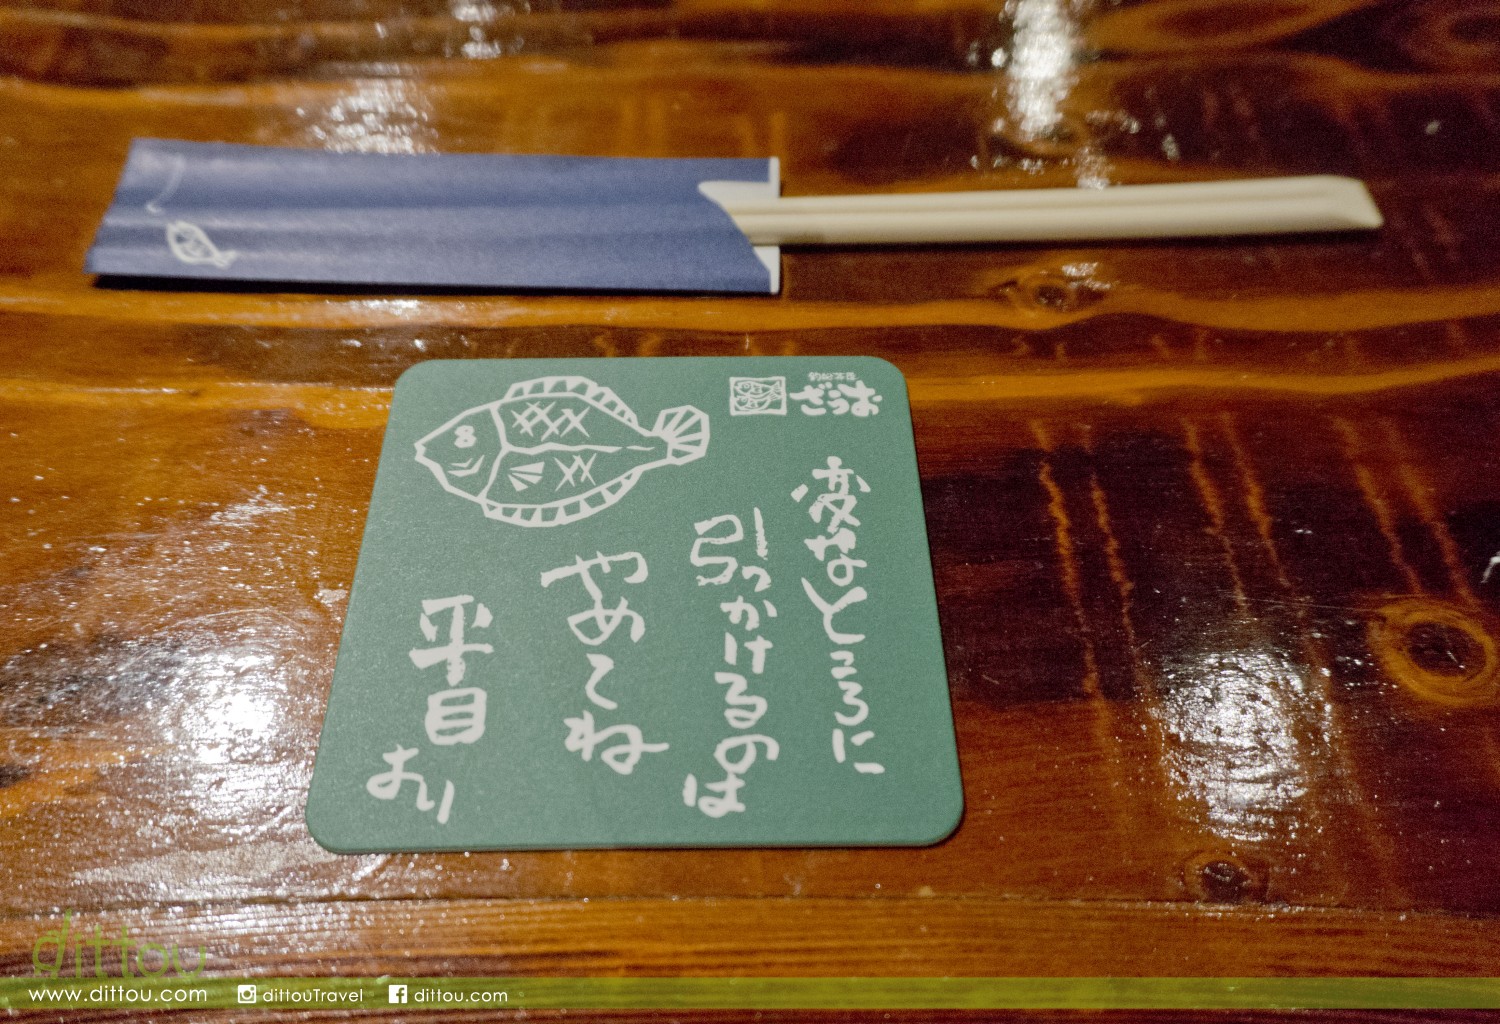 ざうお
変なところに
引っかけるのは
やめてね
平目
より
dittou
www.dittou.com dittouTravel dittou.com